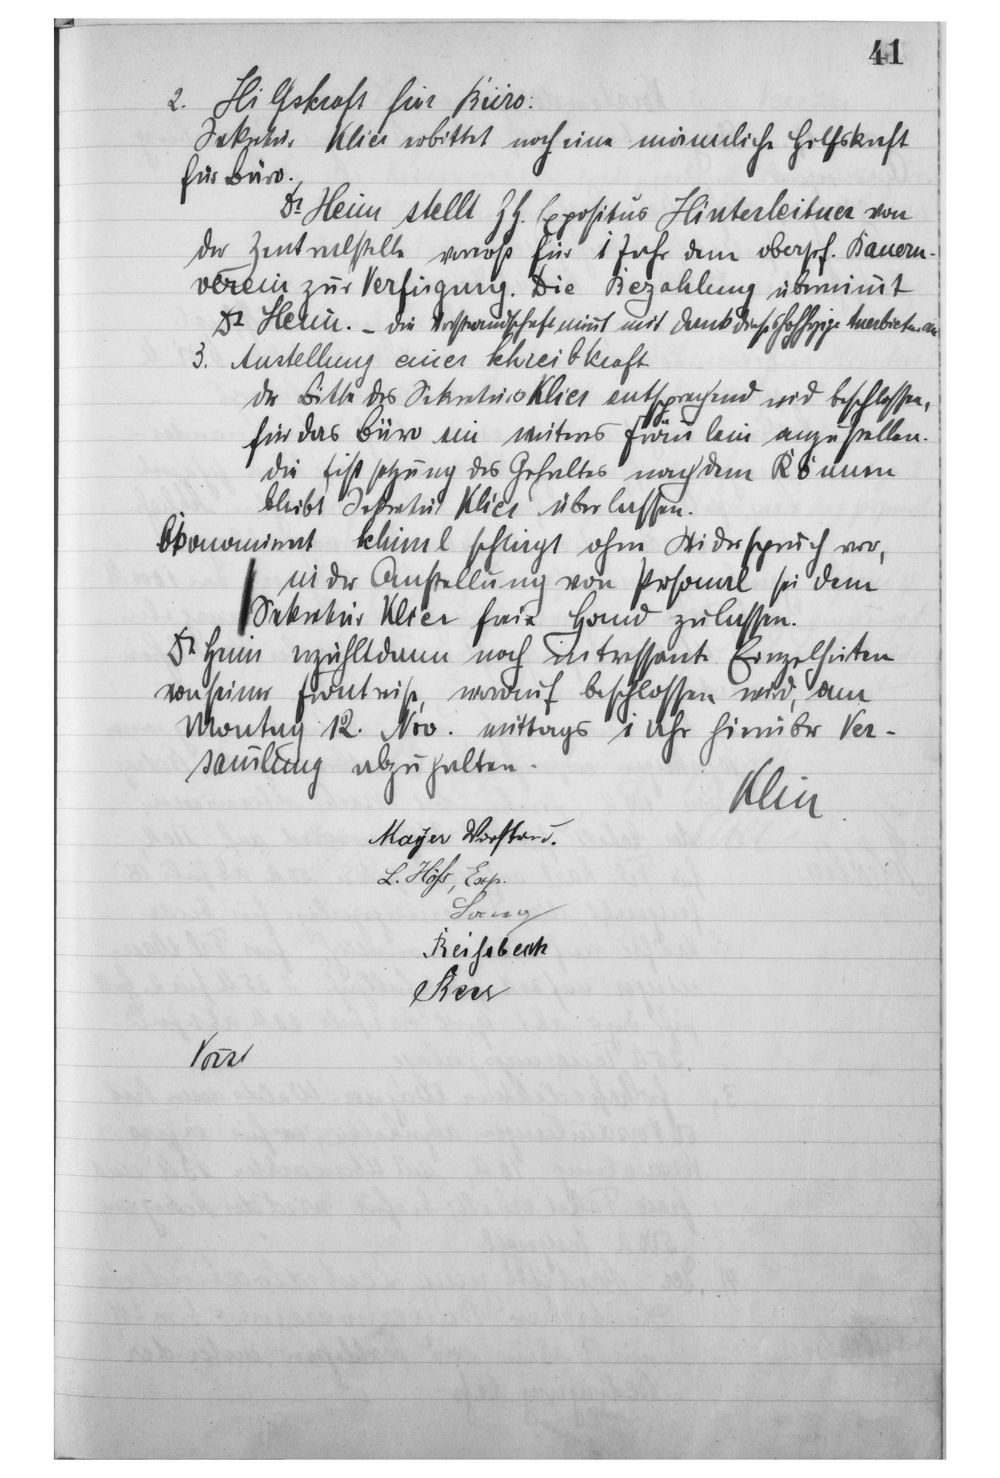 41
2. Hilfskraft für Büro:
Sekretär Klier erbittet noch eine männliche Hilfskraft
für Büro.
Dr Heim stellt Hh. Expositus Hinterleitner von
der Zentralstelle voraus für 1 Jahr dem oberpf. Bauern-
verein zur Verfügung. Die Bezahlung übernimt
Dr Heim. – die Vorstandschaft nimt mit Dank dieses hochherzige Anerbieten an
3. Anstellung einer Schreibkraft
der Bitte des Sekretärs Klier entsprechend wird beschlossen,
für das Büro ein weiteres Fräulein anzustellen.
die Festsetzung des Gehaltes nach dem Können
bleibt Sekretär Klier überlassen.
Ökonomierat schlägt ohne Widerspruch vor,
in der Anstellung von Personal sei dem
Sekretär Klier freie Hand zu lassen.
Dr Heim erzählt dann noch intressante Einzelheiten
von seiner Frontreise, worauf beschlossen wird, am
Montag 12. Nov. mittags 1 Uhr hierüber Ver-
samlung abzuhalten.
Klier
Mayer Vorstand.
L. Höß, Exp.
Lang
Reisbeck